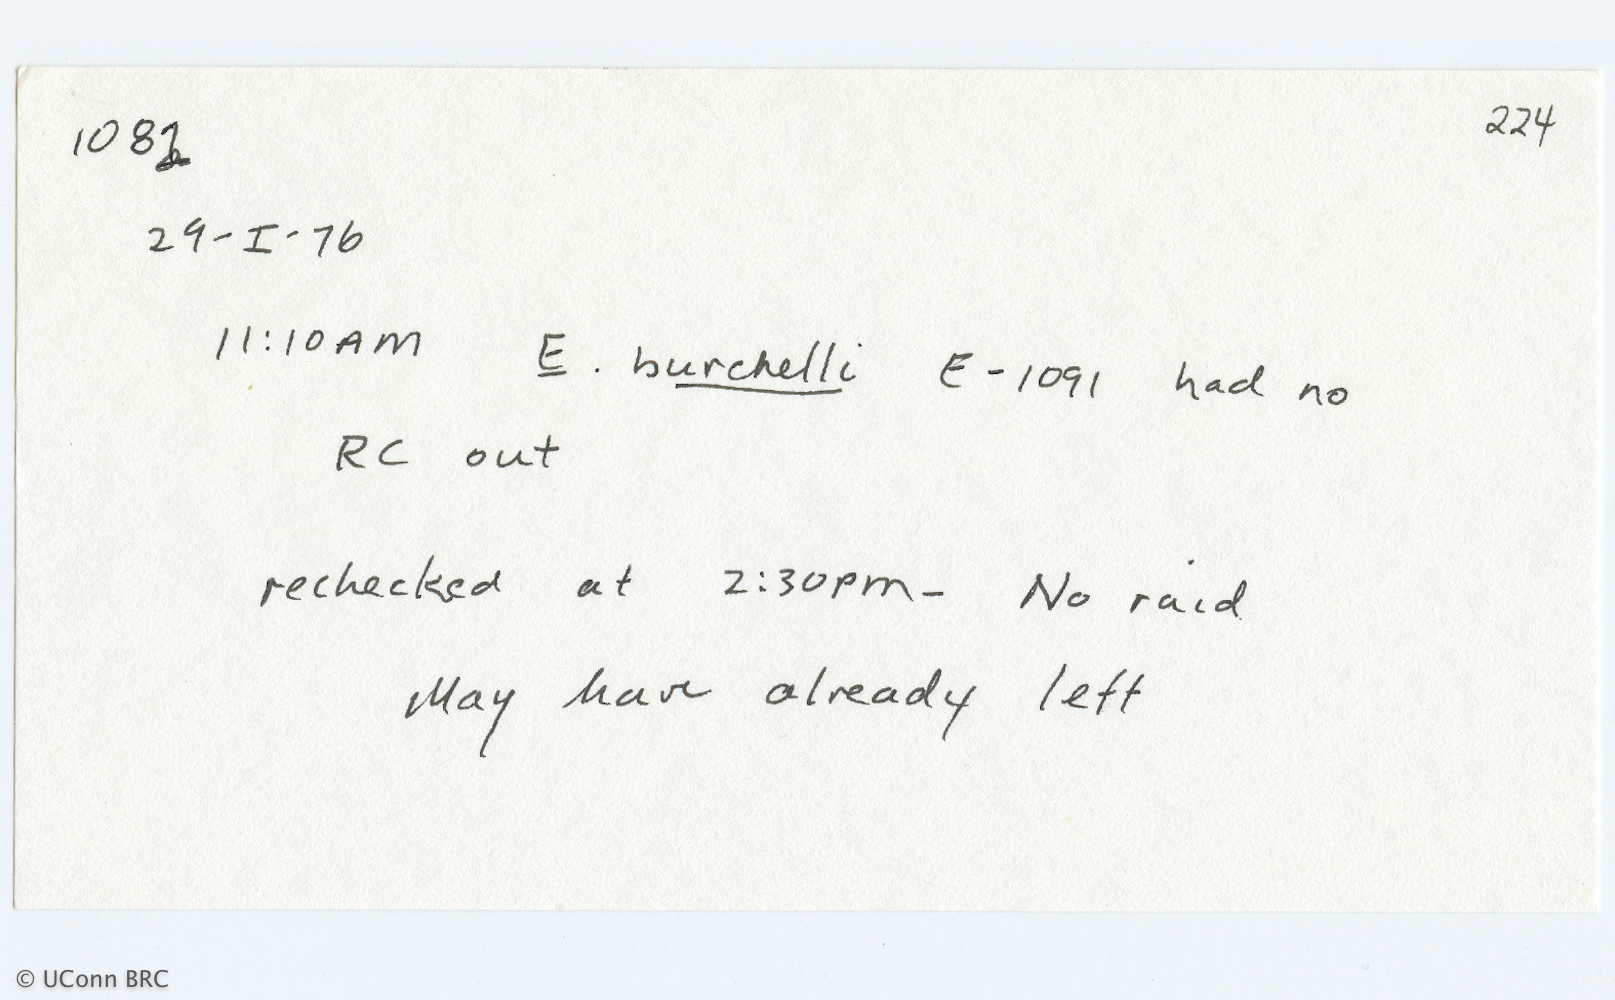 1082
224
29-I-76
11:10AM E. burchelli E-1091 had no
RC out
rechecked at 2:30pm- No raid
May have already left
© UConn BRC